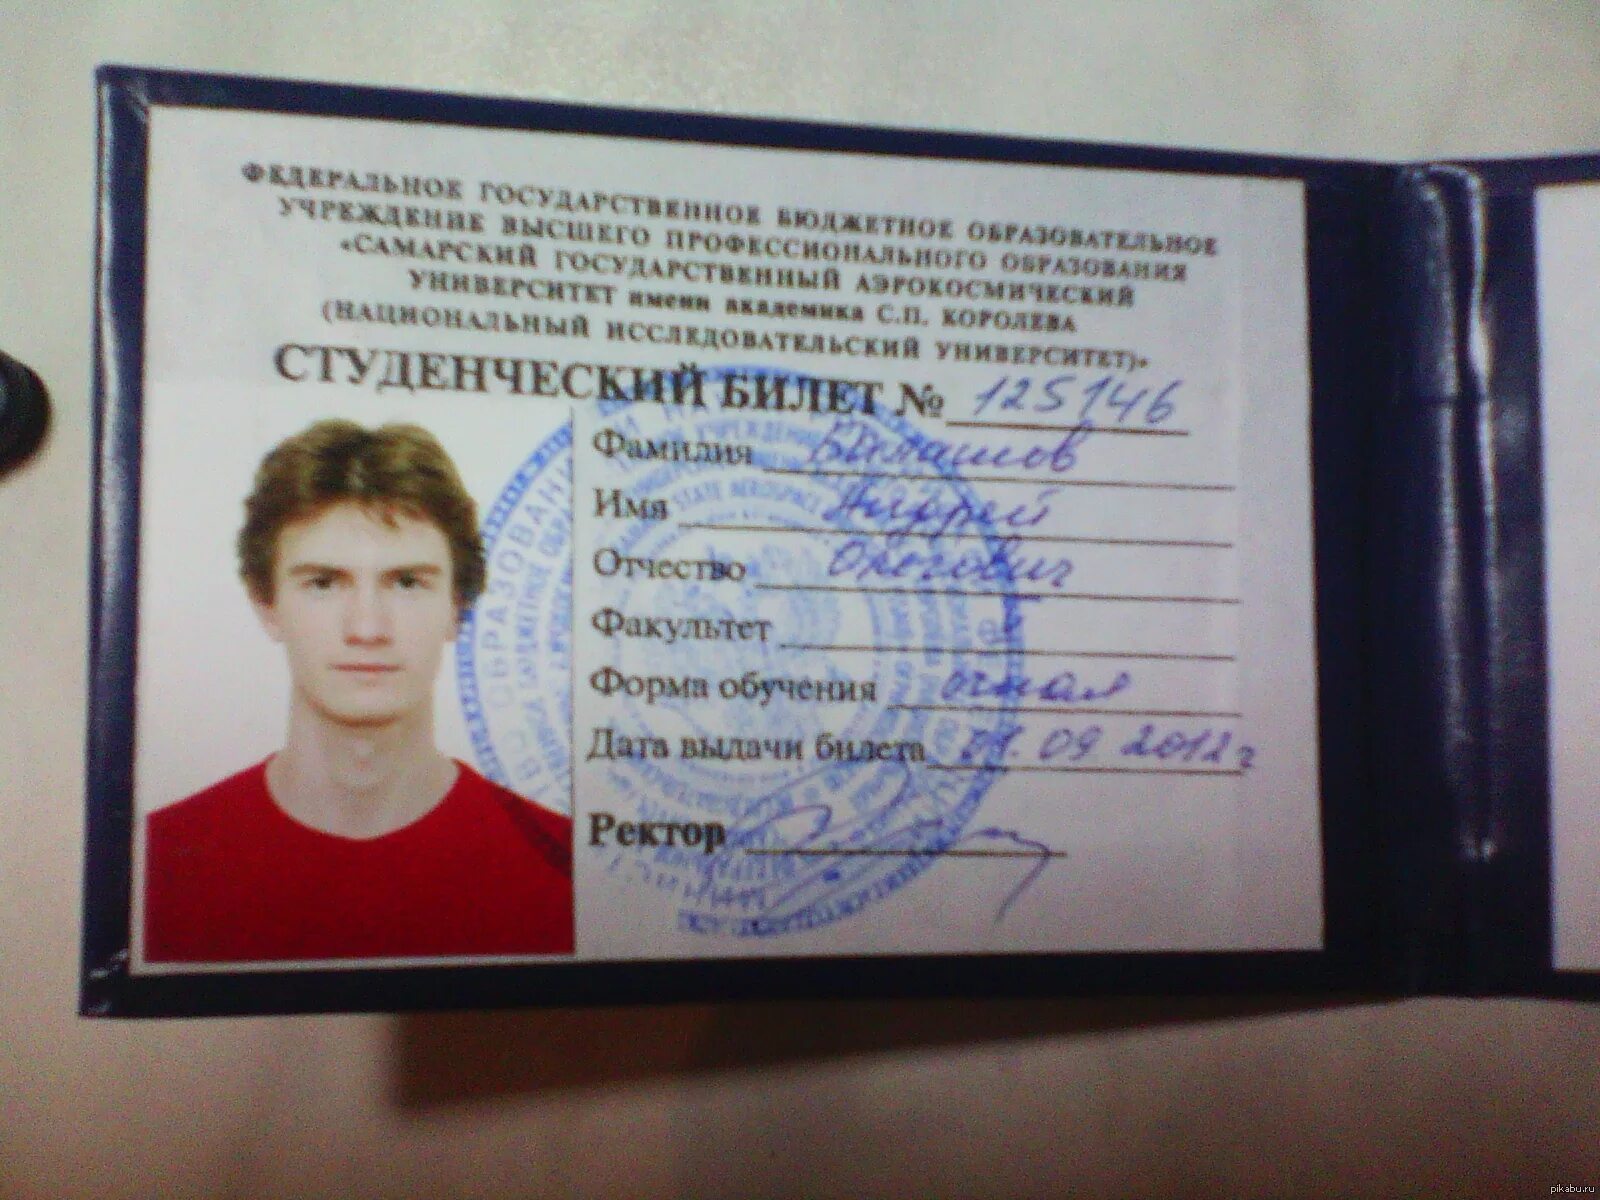 ФЕДЕРАЛЬНОЕ ГОСУДАРСТВЕННОЕ БЮДЖЕТНОЕ ОБРАЗОВАТЕЛЬНОЕ
УЧРЕЖДЕНИЕ ВЫСШЕГО ПРОФЕССИОНАЛЬНОГО ОБРАЗОВАНИЯ
«САМАРСКИЙ ГОСУДАРСТВЕННЫЙ АЭРОКОСМИЧЕСКИЙ
УНИВЕРСИТЕТ имени академика С.П. КОРОЛЕВА
(НАЦИОНАЛЬНЫЙ ИССЛЕДОВАТЕЛЬСКИЙ УНИВЕРСИТЕТ)»
СТУДЕНЧЕСКИЙ БИЛЕТ № 125146
Фамилия
Имя Андрей
Отчество Олегович
Факультет
Форма обучения очная
Дата выдачи билета 01.09 2012 г
Ректор
STATE AEROSPACE
pikabu.ru